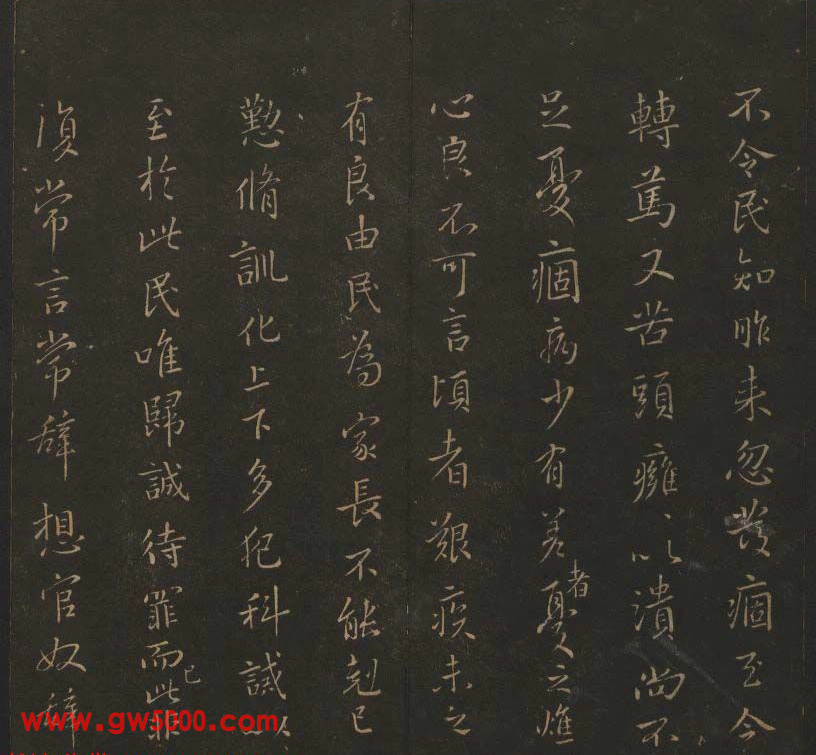 不令民知昨来忽發痼至今
轉篤又苦頭癰以潰尚不
足憂痼病少有差者憂之燋
心良不可言頃者艱疾未之
有良由民為家長不能剋己
懃脩訓化上下多犯科誡以
至於此民唯歸誠待罪而已此非
復常言常辭想官奴辭
www.gw5000.com